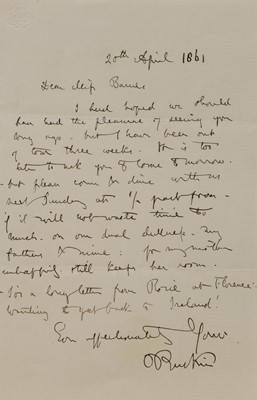 20th April 1861
Dear Miss Barnes
I had hoped we should
have had the pleasure of seeing you
long ago. but I have been out
of town three weeks. It is too
late to ask you to come tomorrow.
- but please come & dine with us
next Sunday at 1/2 past four -
if it will not waste time too
much - on our dual dullness - my
fathers & mine: for my mother
unhappily still keeps her room.
- I've a long letter from Rosie at Florence
wanting to get back to Ireland!
Ever affectionately Yours
J Ruskin